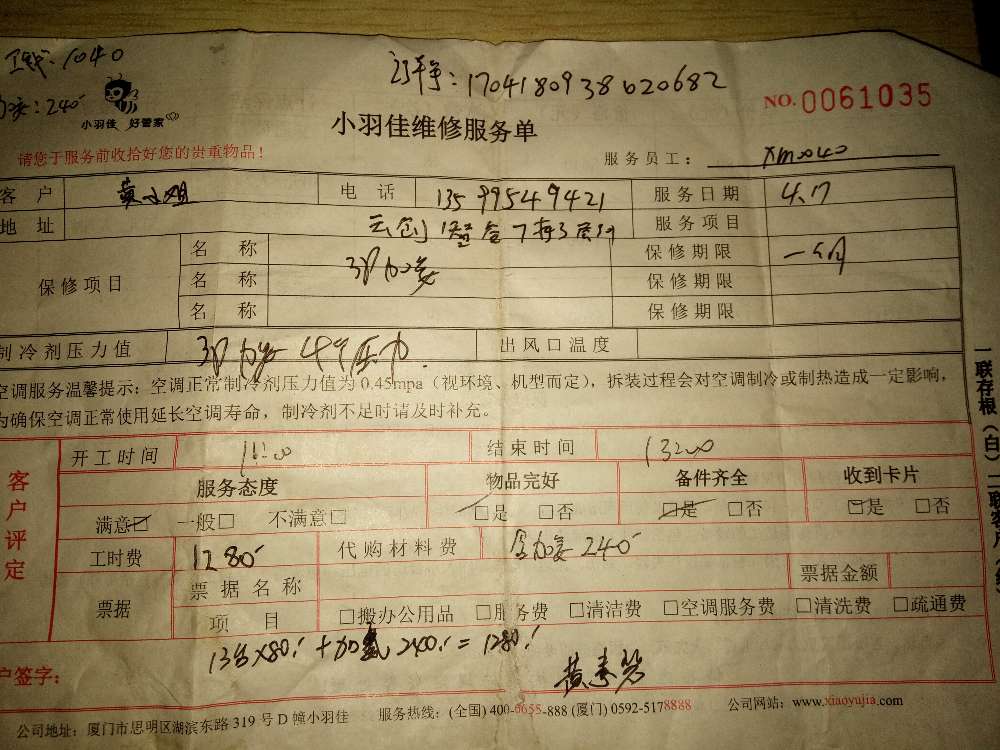 1040
订单: 1704180938020682
240
小羽佳 好管家
NO.0061035
小羽佳维修服务单
请您于服务前收拾好您的贵重物品！
服务员工： xm0040
客 户 黄小姐 电 话 13599549421 服务日期 4.17
地 址 服务项目
保修项目 名 称 保修期限 一个月
名 称 保修期限
名 称 保修期限
制冷剂压力值 出风口温度
空调服务温馨提示：空调正常制冷剂压力值为 0.45mpa（视环境、机型而定），拆装过程会对空调制冷或制热造成一定影响，
为确保空调正常使用延长空调寿命，制冷剂不足时请及时补充。
客户评定
开工时间 结束时间
服务态度 物品完好 备件齐全 收到卡片
满意□ 一般□ 不满意□ □是 □否 □是 □否 □是 □否
工时费 1280 代购材料费 240
票据 票据名称 票据金额
项 目 □搬办公用品 □服务费 □清洁费 □空调服务费 □清洗费 □疏通费
13台×80 + 加氟 240 = 1280
户签字：
公司地址：厦门市思明区湖滨东路 319 号 D 幢小羽佳 服务热线：(全国) 400-6655-888 (厦门) 0592-5178888 公司网站：www.xiaoyujia.com
一联存根（白）